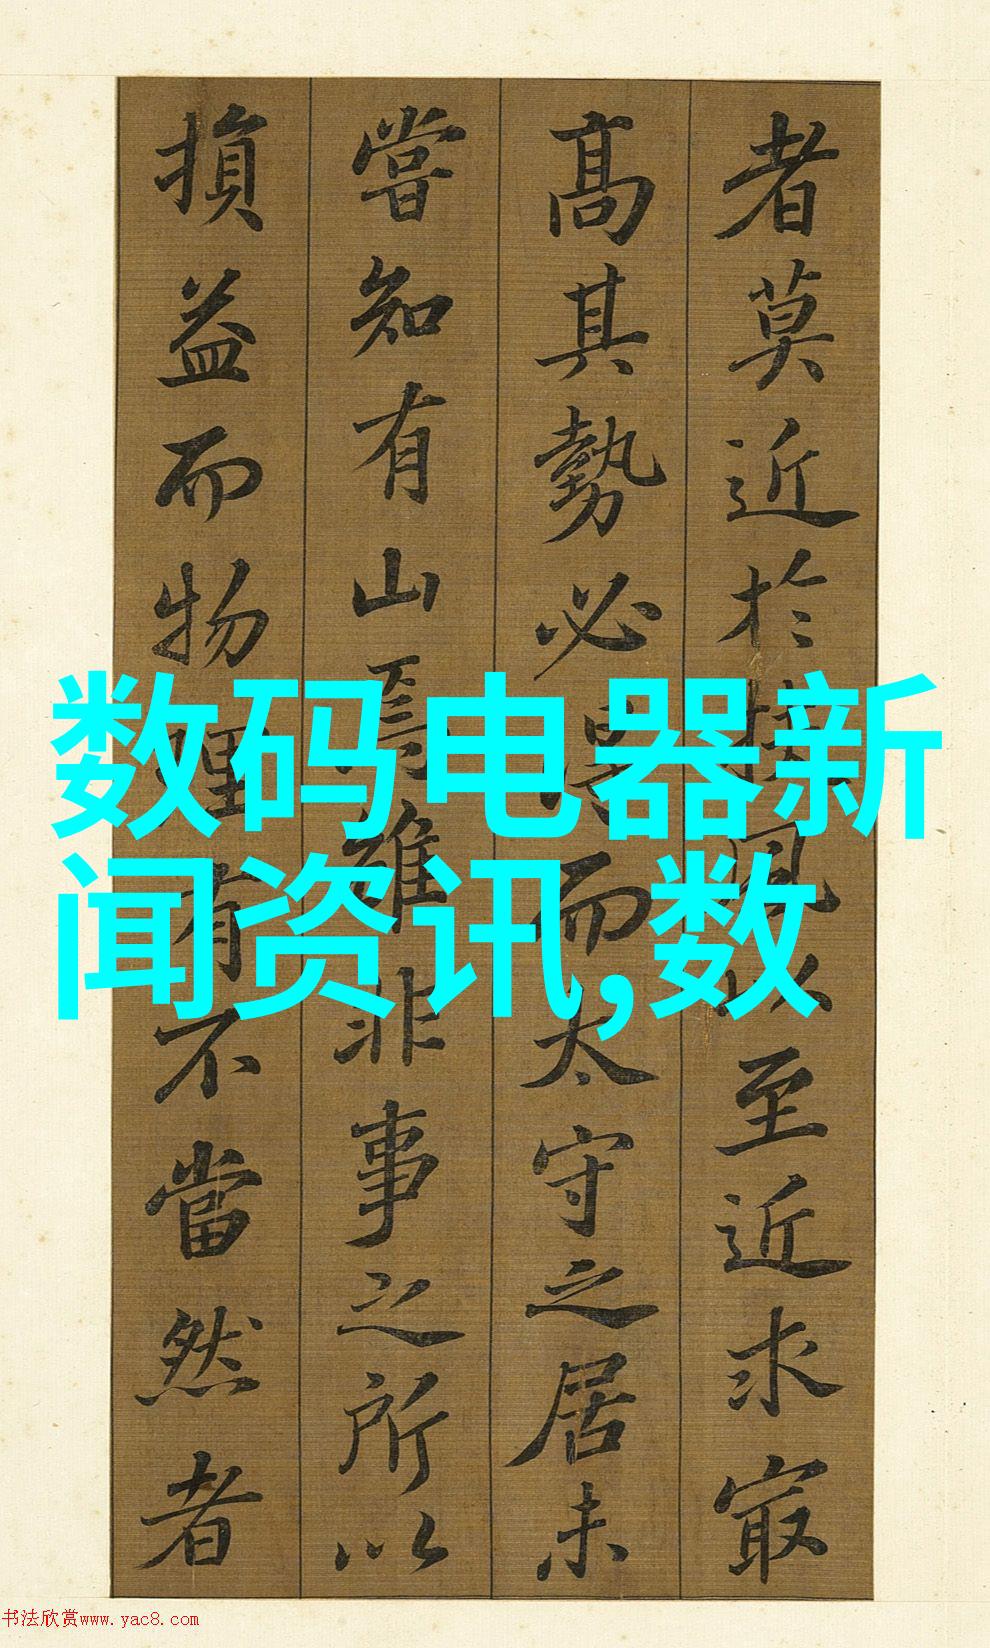 者莫近於扶風以至近求㝡
髙其勢必得而太守之居未
嘗知有山焉雖非事之所以
損益而物理有不當然者
数码电器新
闻资讯,数
书法欣赏www.yac8.com